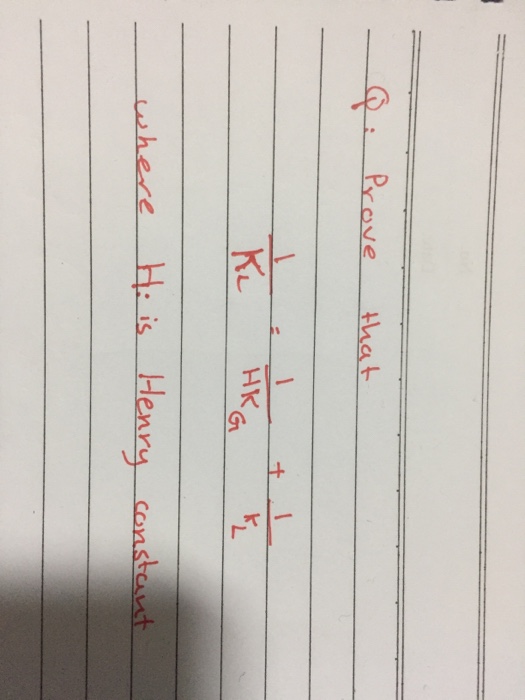 Q: Prove that
1/KL = 1/HKG + 1/kL
where H: is Henry constant